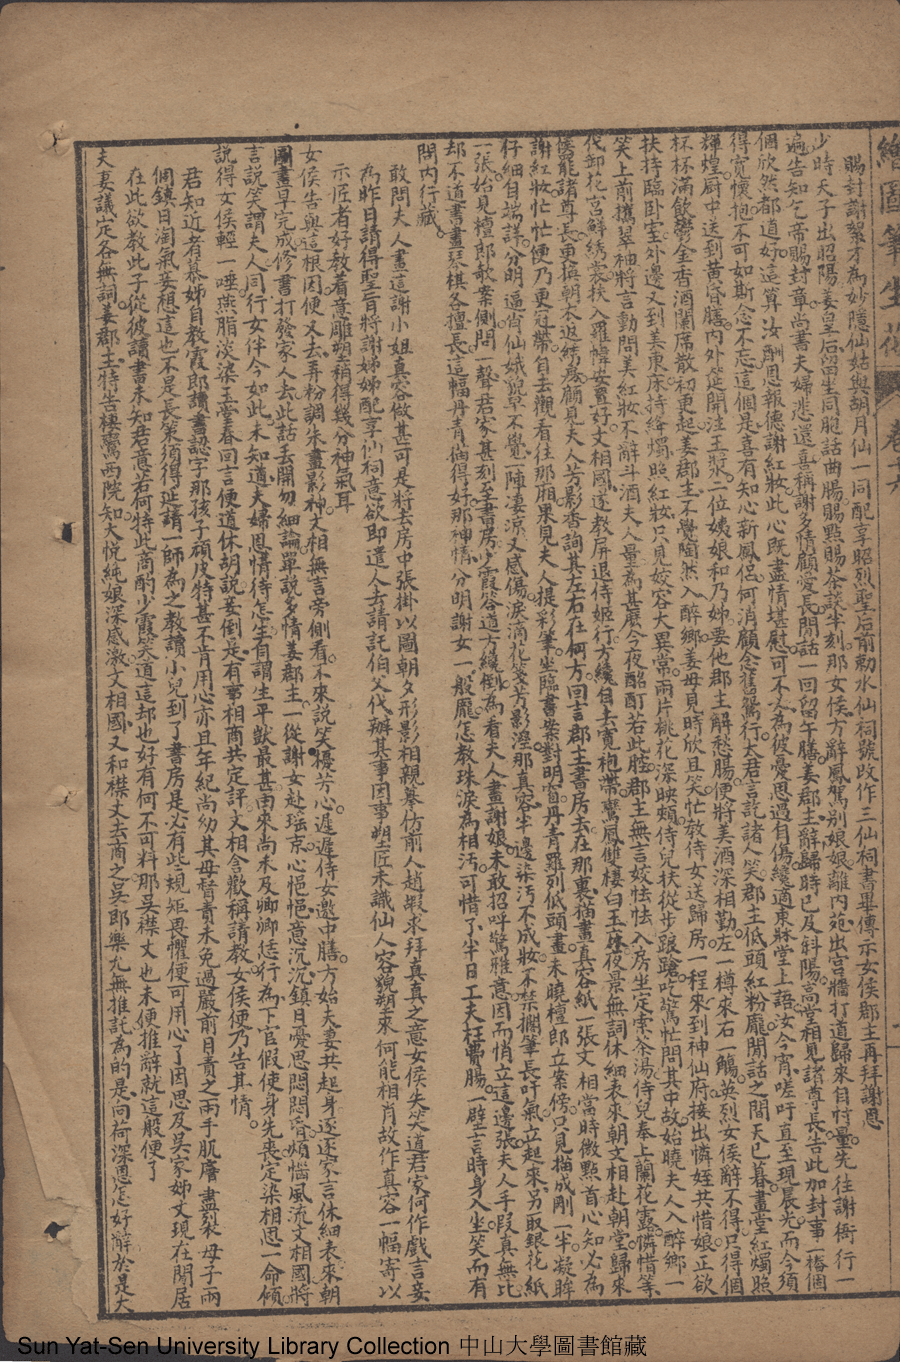 繪圖筆生花 卷十六
賜封謝絮才為妙隱仙姑與胡月仙一同配享昭烈聖后前勅水仙祠號改作三仙祠書畢傳示女侯郡主再拜謝恩
少時天子出昭陽姜皇后留坐同胞話曲腸賜點賜茶談半刻那女侯方辭鳳駕別娘娘離內苑出宮牆打道歸來自忖量先往謝衙行一
遍告知乞帝賜封章尚書夫婦悲還喜稱謝多情顧愛長閒話一回留午膳姜郡主辭歸時已及斜陽高堂相見諸尊長告此加封事一樁個
個欣然都道好這算汝酬恩報德謝紅妝此心既盡情堪慰可不必為彼憂思過自傷纔適東牀堂上語汝今宵嗟吁直至現晨光而今須
得寬懷抱不可如斯念不忘這個是喜有知心新鳳侶何消顧念舊鴛行太君言訖諸人笑郡主低頭紅粉龐閒話之間天已暮畫堂紅燭照
輝煌厨中送到黃昏膳內外筵開注玉漿二位姨娘和乃姊要他郡主解愁腸便將美酒深相勸左一樽來右一觴英烈女侯辭不得只得個
杯杯滿飲鬱金香酒闌席散初更起姜郡主不覺陶然入醉鄉姜母見時欣且笑忙教侍女送歸房一程來到神仙府接出憐姪共惜娘正欲
扶持臨臥室外邊又到美東床持絳燭照紅妝只見姣容大異常兩片桃花深映頰侍兒扶從步踉蹌吃驚忙問其中故始曉夫人入醉鄉一
笑上前攜翠袖將言動問美紅妝不辭斗酒夫人量為甚麼今夜酩酊若此腔郡主無言姣怯怯入房坐定索茶湯侍兒奉上蘭花露憐惜等
代卸花宮鮮綉裳扶入羅幃安置好文相國遂教屏退侍姬行方纔自去寬袍帶鸞鳳雙棲白玉牀夜景無詞休細表來朝文相赴朝堂歸來
儍罷諸尊長更換朝衣返綉房顧見夫人芳影杳詢其左右在何方回言郡主書房去在那裏描畫真容紙一張文相當時微點首心知必為
謝紅妝忙忙便乃更冠帶自去觀看往那廂果見夫人提彩筆坐臨書案對明窗丹青羅列低頭畫未曉檀郎立案傍只見描成剛一半凝眸
仔細自端詳分明逼肖仙娥貌草不覺一陣凄涼又感傷淚滴花箋芳影溼那真容半邊染污不成妝不禁擱筆長吁氣立起來另取銀花紙
一張始見檀郎欹案側問一聲君家甚刻至書房少霞答道方纔到為看夫人畫謝娘未敢招呼驚雅意因而悄立這邊張夫人手段真無比
却不道書畫琴棋各擅長這幅丹青倘得好那神情分明謝女一般龐怎教珠淚為相污可惜了半日工夫枉費腸一壁言時身入坐笑而有
問內行藏
敢問夫人畫這謝小姐真容做甚可是將去房中張掛以圖朝夕形影相親摹仿前人趙嘏求拜真真之意女侯失笑道君家何作戲言妾
為昨日請得聖旨將謝姊姊配享仙祠意欲即遣人去請託伯父代辦其事因事塑匠未識仙人容貌塑來何能相肖故作真容一幅寄以
示匠者好教着意雕塑稍得幾分神氣耳
女侯告與這根因便又去弄粉調朱畫影神文相無言旁側看不來說笑擾芳心遲遲侍女邀中膳方始夫妻共起身逐逐家言休細表來朝
圖畫早完成修書打發家人去此話丟開勿細論單說多情姜郡主一從謝女赴瑶京心悒悒意沉沉鎮日憂思悶悶昏煩惱風流文相國將
言說笑謂夫人同行女伴今如此未知道夫婦恩情待怎生自謂生平猷最甚南來尚未及卿卿恁行為下官假使身先喪定染相思一命傾
說得女侯輕一唾燕脂淡染玉臺春回言便道休胡說妾倒是有事相商共定評文相含歡稱請教女侯便乃告其情
君知近者慕姊自教霞郎讀書認字那孩子頑皮特甚不肯用心亦且年紀尚幼其母督責未免過嚴前日責之兩手肌膚盡裂母子兩
個鎮日淘氣妾想這也不是長策須得延請一師為之教讀小兒到了書房是必有些規矩畏懼便可用心了因思及吳家姊丈現在閒居
在此欲教此子從彼讀書未知君意若何特此商酌少霞笑道這却也好有何不可料那吳襟丈也未便推辭就這般便了
夫妻議定各無詞姜郡主特告棲鸞西院知大悅純娘深感激文相國又和襟丈去商之吳郎樂尤無推託為的是向荷深恩怎好辭於是大
Sun Yat-Sen University Library Collection 中山大學圖書館藏